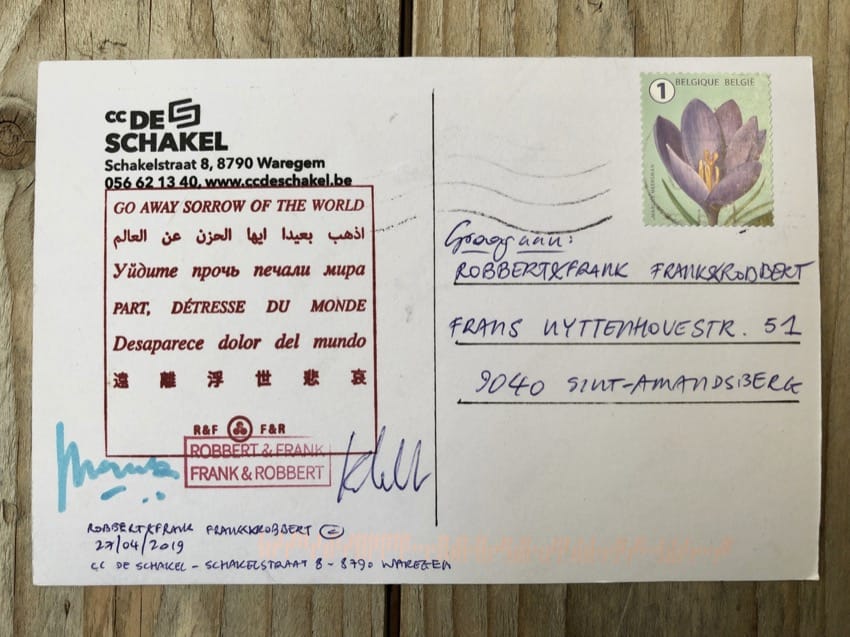 cc DE
SCHAKEL
Schakelstraat 8, 8790 Waregem
056 62 13 40, www.ccdeschakel.be
GO AWAY SORROW OF THE WORLD
اذهب بعيدا ايها الحزن عن العالم
Уйдите прочь печали мира
PART, DÉTRESSE DU MONDE
Desaparece dolor del mundo
遠離浮世悲哀
R&F F&R
ROBBERT & FRANK
FRANK & ROBBERT
ROBBERT&FRANK FRANK&ROBBERT
27/04/2019
CC DE SCHAKEL - SCHAKELSTRAAT 8 - 8790 WAREGEM
1 BELGIQUE BELGIË
Graag aan:
ROBBERT&FRANK FRANK&ROBBERT
FRANS UYTTENHOVESTR. 51
9040 SINT-AMANDSBERG